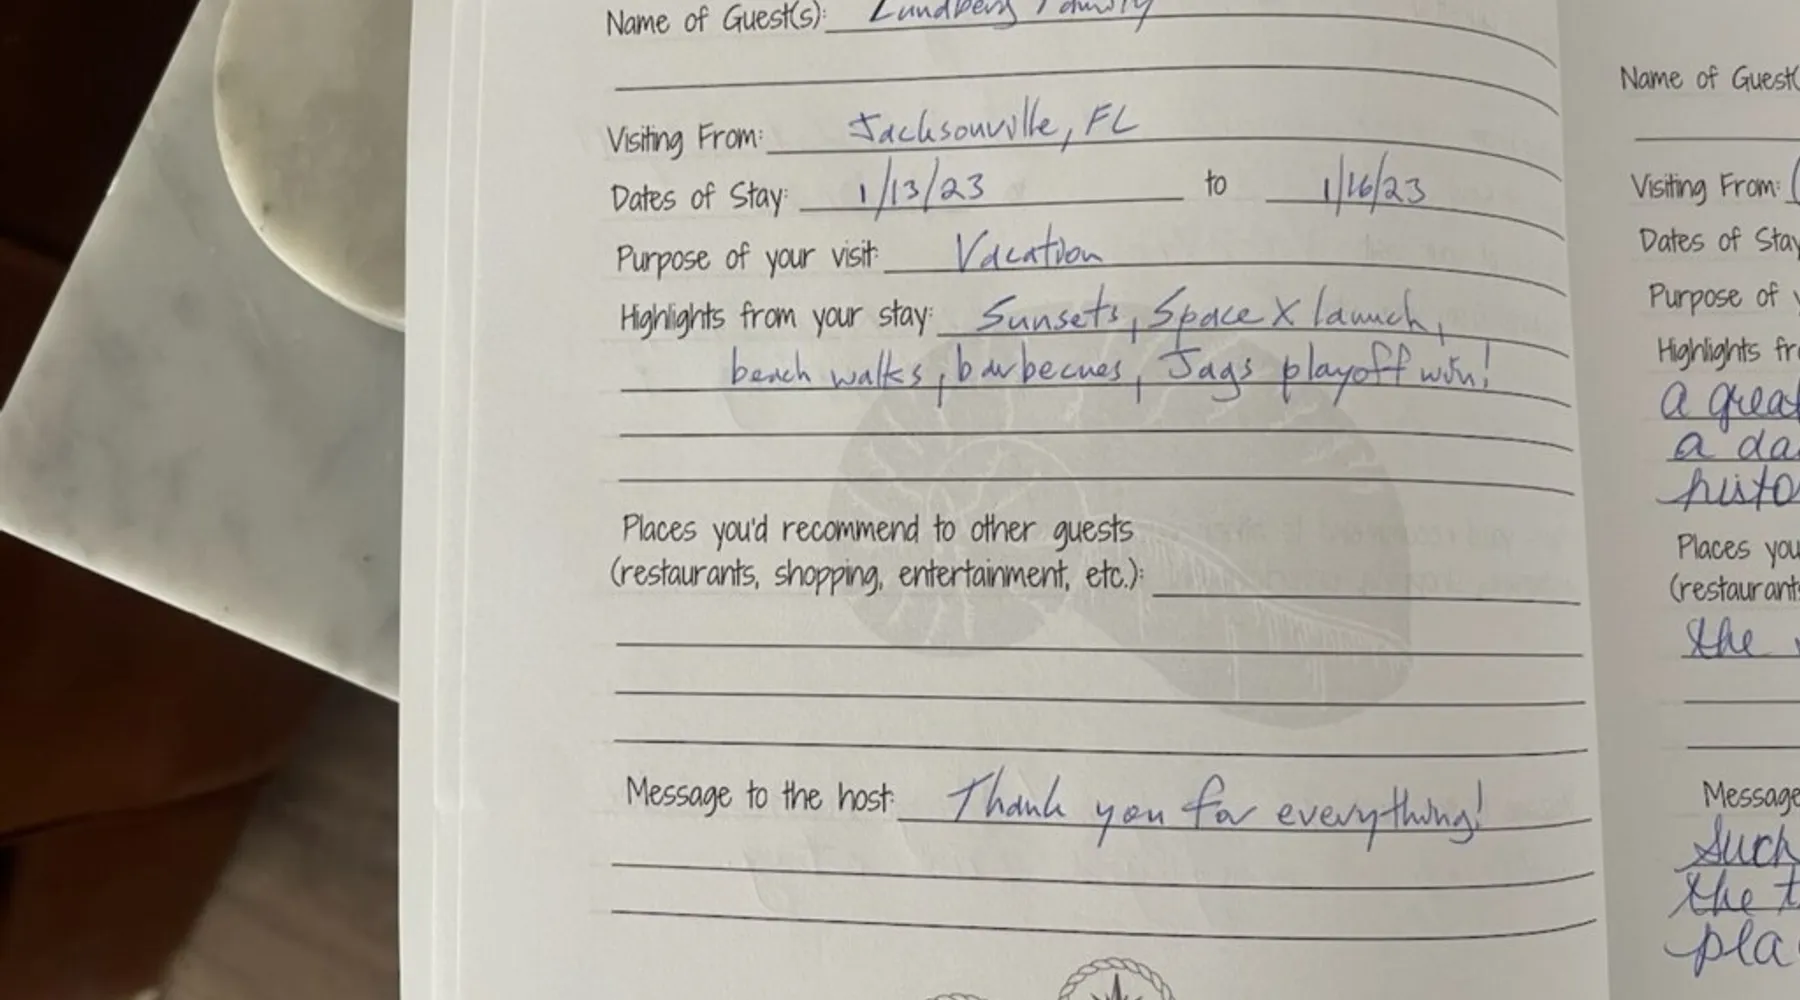 Name of Guest(s): Lundberg Family
Visiting From: Jacksonville, FL
Dates of Stay: 1/13/23 to 1/16/23
Purpose of your visit: Vacation
Highlights from your stay: Sunsets, Space X launch,
beach walks, barbecues, Jags playoff win!
Places you'd recommend to other guests
(restaurants, shopping, entertainment, etc.):
Message to the host: Thank you for everything!
Name of Guest(
Visiting From:
Dates of Stay
Purpose of
Highlights fr
a great
a da
histo
Places you
(restaurants
the
Message
Such
the t
pla